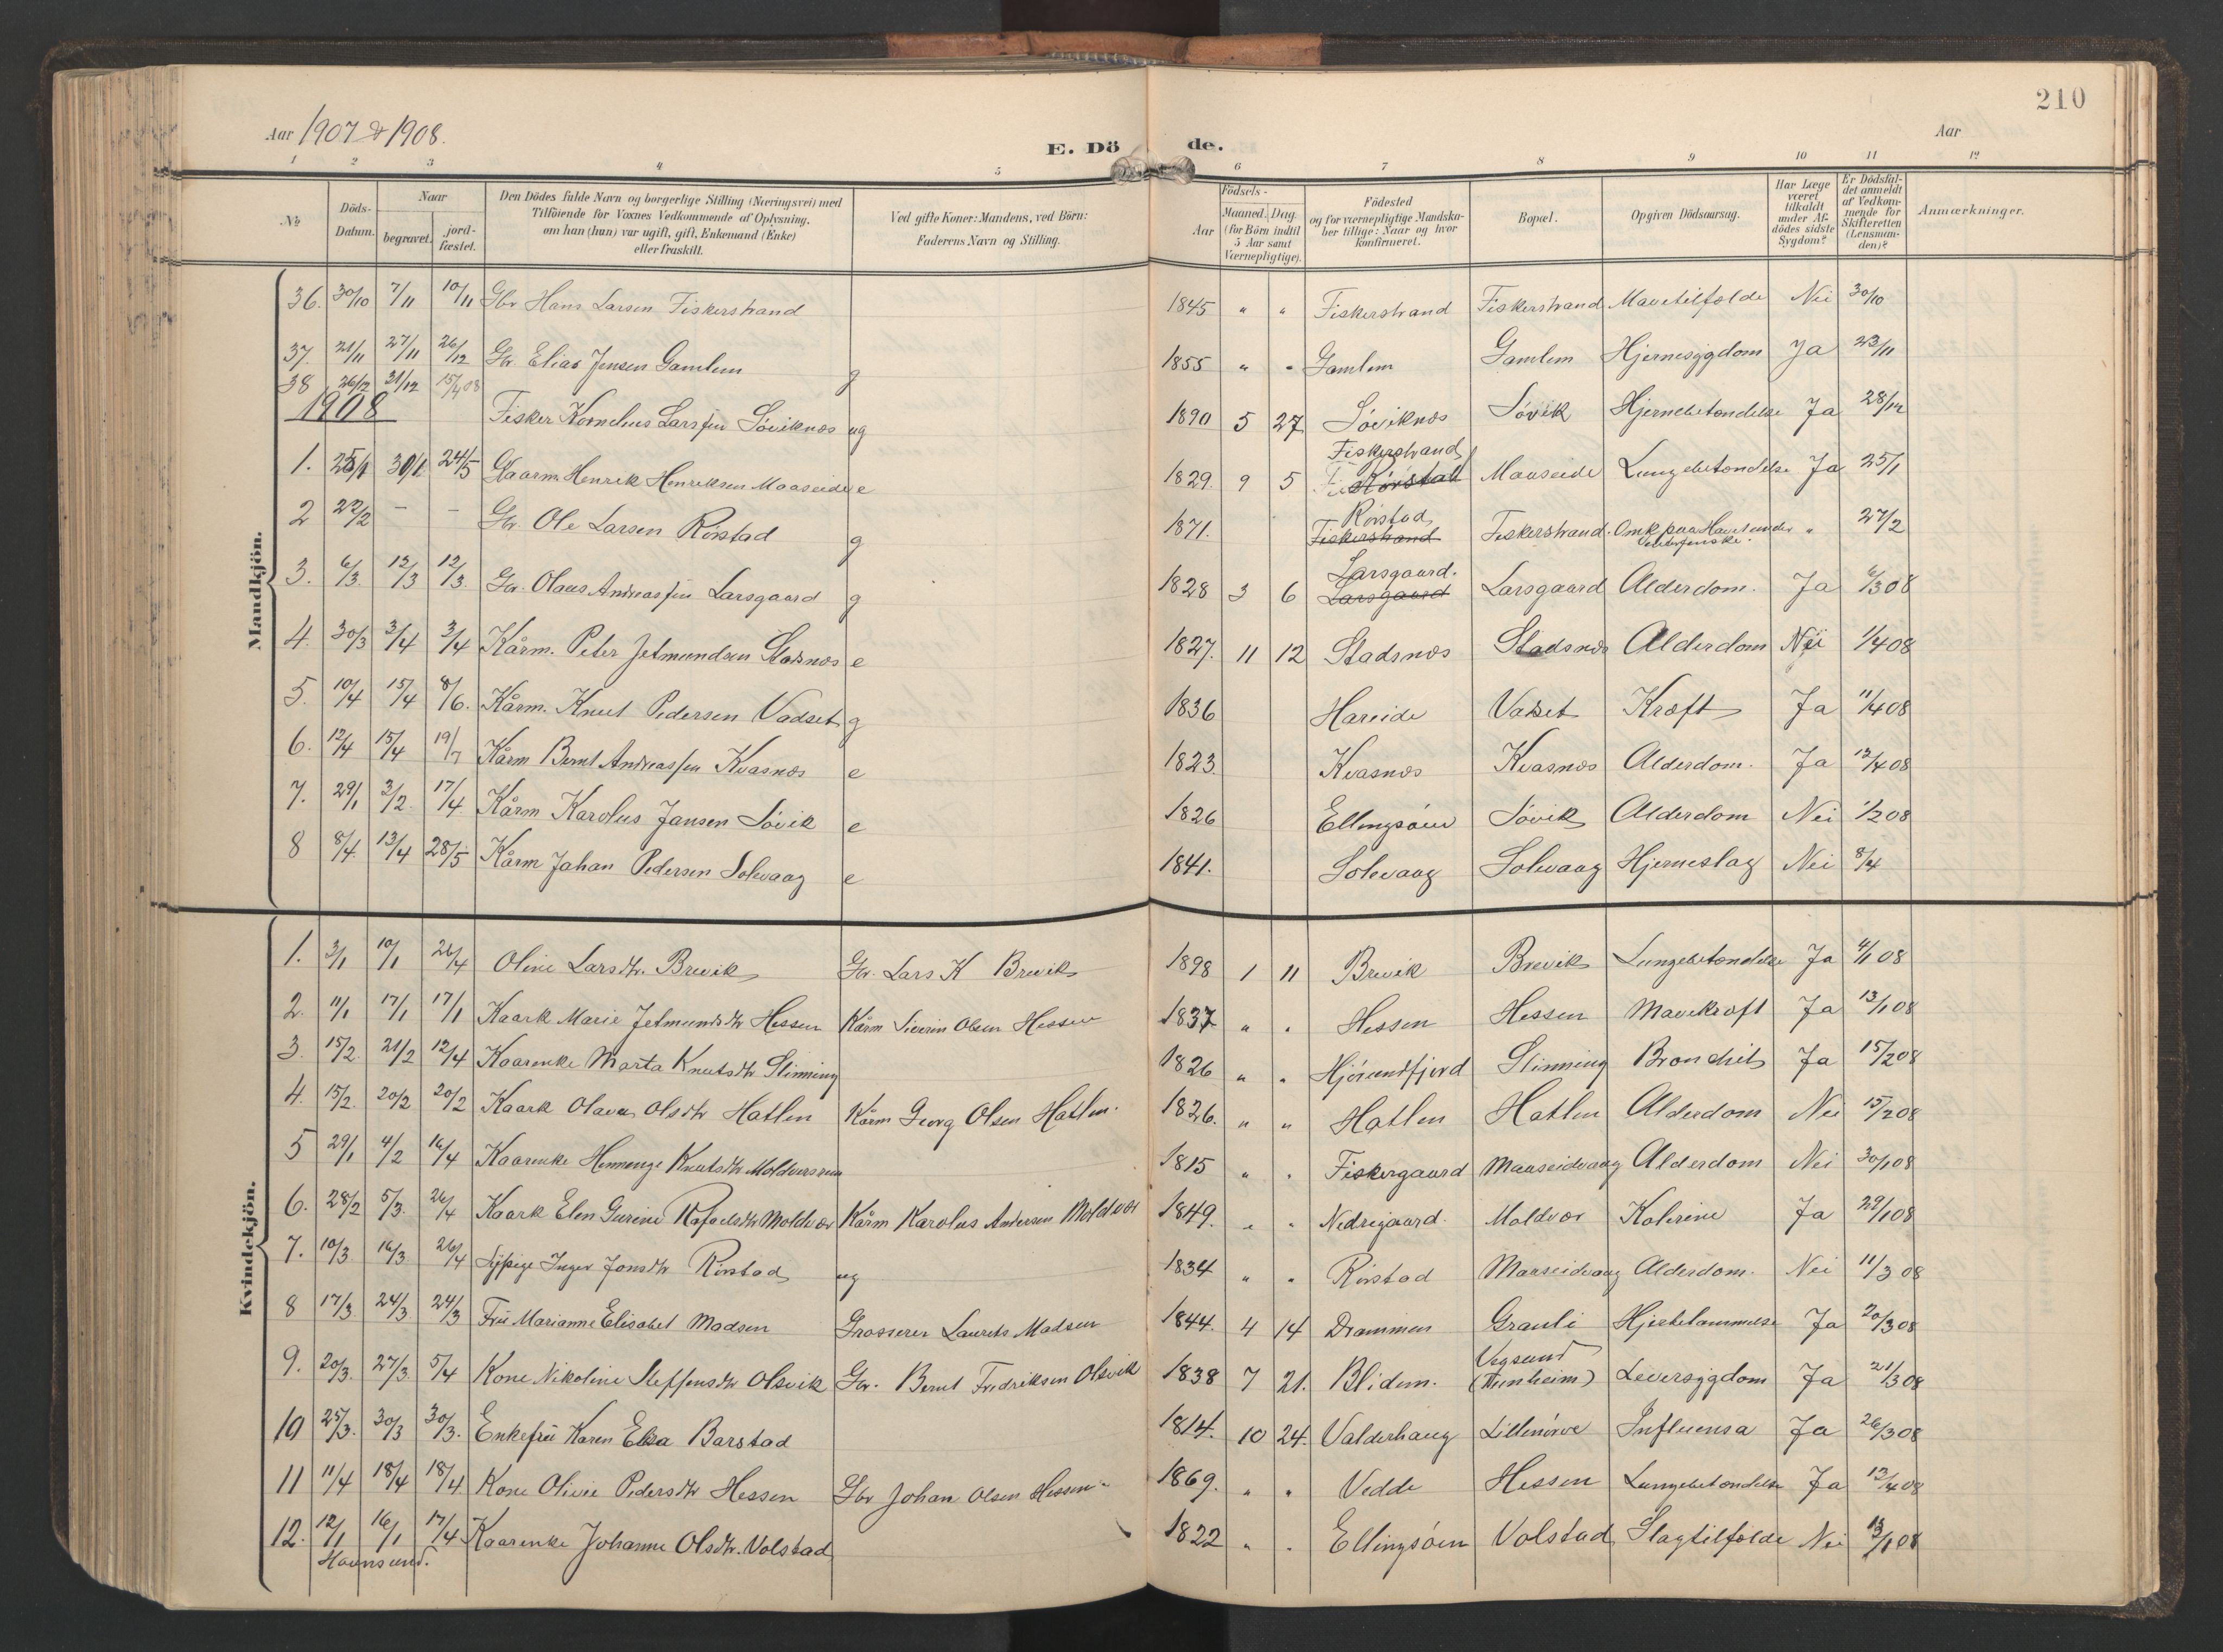 210
Aar 1907 & 1908.
E. Dö de.
Aar
1 2 3 4 5 6 7 8 9 10 11 12
№
Döds-Datum.
Naar begravet. jord-fæstet.
Den Dödes fulde Navn og borgerlige Stilling (Næringsvei) med Tilföiende for Voxnes Vedkommende af Oplysning, om han (hun) var ugift, gift, Enkemand (Enke) eller fraskilt.
Ved gifte Koner: Mandens, ved Börn: Faderens Navn og Stilling.
Födsels-
Aar
Maaned. Dag. (for Börn indtil 5 Aar samt Værnepligtige).
Födested og for værnepligtige Mandskaber tillige: Naar og hvor konfirmeret.
Bopæl.
Opgiven Dödsaarsag.
Har Læge været tilkaldt under Afdödes sidste Sygdom?
Er Dödsfaldet anmeldt af Vedkommende for Skifteretten (Lensmanden)?
Anmærkninger.
Mandkjön.
36. 30/10 7/11 10/11 Gbr Hans Larsen Fiskerstrand 1845 " " Fiskerstrand Fiskerstrand Mavetilfølde Nei 30/10
37. 21/11 27/11 26/12 Gr. Elias Jensen Gamlem g 1855 " " Gamlem Gamlem Hjernesygdom Ja 23/11
38 26/12 31/12 15/4 08 Fisker Kornelius Larsen Søviknes ug 1890 5 27 Søviknes Søvik Hjernebetændelse Ja 28/12
1908
1. 25/1 30/1 24/5 Kaarm. Henrik Henriksen Maaseide e 1829. 9 5 Fiskerstrand Rörstad Maaseide Lungebetændelse Ja 25/1
2 22/2 - - Gr. Ole Larsen Rörstad g 1871. Rörstad Fiskerstrand Fiskerstrand. Omk paa Havet under Vinterfiske. " 27/2
3. 6/3 12/3 12/3. Gr. Olaus Andreassen Larsgaard g 1828 3 6 Larsgaard. Larsgaard Larsgaard Alderdom. Ja 6/3 08
4. 30/3 3/4 3/4 Kårm. Peter Jetmundsen Stadsnes e 1827. 11 12 Stadsnes Stadsnes Alderdom Nei 1/4 08
5. 10/4 15/4 8/6. Kårm. Knut Pedersen Vadset g 1836 Hareide Vadset Kræft Ja 11/4 08
6. 12/4 15/4 19/7 Kårm Bernt Andreassen Kvasnes e 1823. Kvasnes Kvasnes Alderdom. Ja 13/4 08
7. 29/1 3/2. 17/4 Kårm Karolus Jansen Søvik e 1826 Ellingsöen Søvik Alderdom Nei 1/2 08
8 8/4. 13/4 28/5 Kårm Johan Pedersen Solevaag e 1841. Solevaag Solevaag Hjerneslag Nei 8/4
Kvindekjön.
1. 3/1 10/1 26/4 Oline Larsdtr. Brevik Gr. Lars K Brevik 1898 1 11 Brevik Brevik Lungebetændelse Ja 4/1 08
2. 11/1 17/1 17/1 Kaark Marie Jetmundsdtr Hessen Kårm Sivrin Olsen Hessen 1837 " " Hessen Hessen Mavekræft Ja 13/1 08
3. 15/2. 21/2 12/4 Kaarenke Marta Knutsdtr Slinning 1826 " " Hjörundfjord Slinning Bronchit Ja 15/2 08
4. 15/2. 20/2 20/2 Kaark Olava Olsdtr Hatlen Kårm Georg Olsen Hatlen. 1826. " " Hatlen Hatlen Alderdom Nei 15/2 08
5 29/1 4/2 16/4 Kaarenke Knutsdtr 1815 " " Fiskergaard Maaseidvaag Alderdom Nei 30/1 08
6. 28/2 5/3. 26/4 Kaark Elen Gurine Rafaelsdtr Moldvær Kårm Karolus Andersen Moldvær 1849. " " Nedregaard. Moldvær Kolerine Ja 29/1 08
7. 10/3 16/3. 26/4 Inger Jonsdtr Rörstad ug 1834 " " Rörstad Maaseidvaag Alderdom. Nei 11/3 08
8 17/3. 24/3. 24/3 Frú Marianne Elisabet Madsen Grosserer Laurits Madsen 1844. 4 14 Drammen Grauli Hjertelammelse Ja 20/3 08
9. 20/3. 27/3. 5/4 Kone Nikoline Steffensdtr Olsvik Gr. Bernt Fredriksen Olsvik 1838 7 21. Blidem. Vegsund (Tunheim) Leversygdom Ja 21/3 08
10 25/3. 30/3 30/3. Enkefrú Karen Elsa Barstad 1814. 10 24. Valderhaug Lillenörve Influensa Ja 26/3 08
11 11/4 18/4 18/4 Kone Olivie Pedersdtr Hessen Gbr Johan Olsen Hessen 1869. " " Vedde Hessen Lungebetændelse Ja 13/4 08
12. 12/1 16/1 17/4 Kaarenke Johanne Olsdtr. Volstad 1822 " " Ellingsöen Volstad Slagtilfælde Nei 13/1 08
Havnsund.